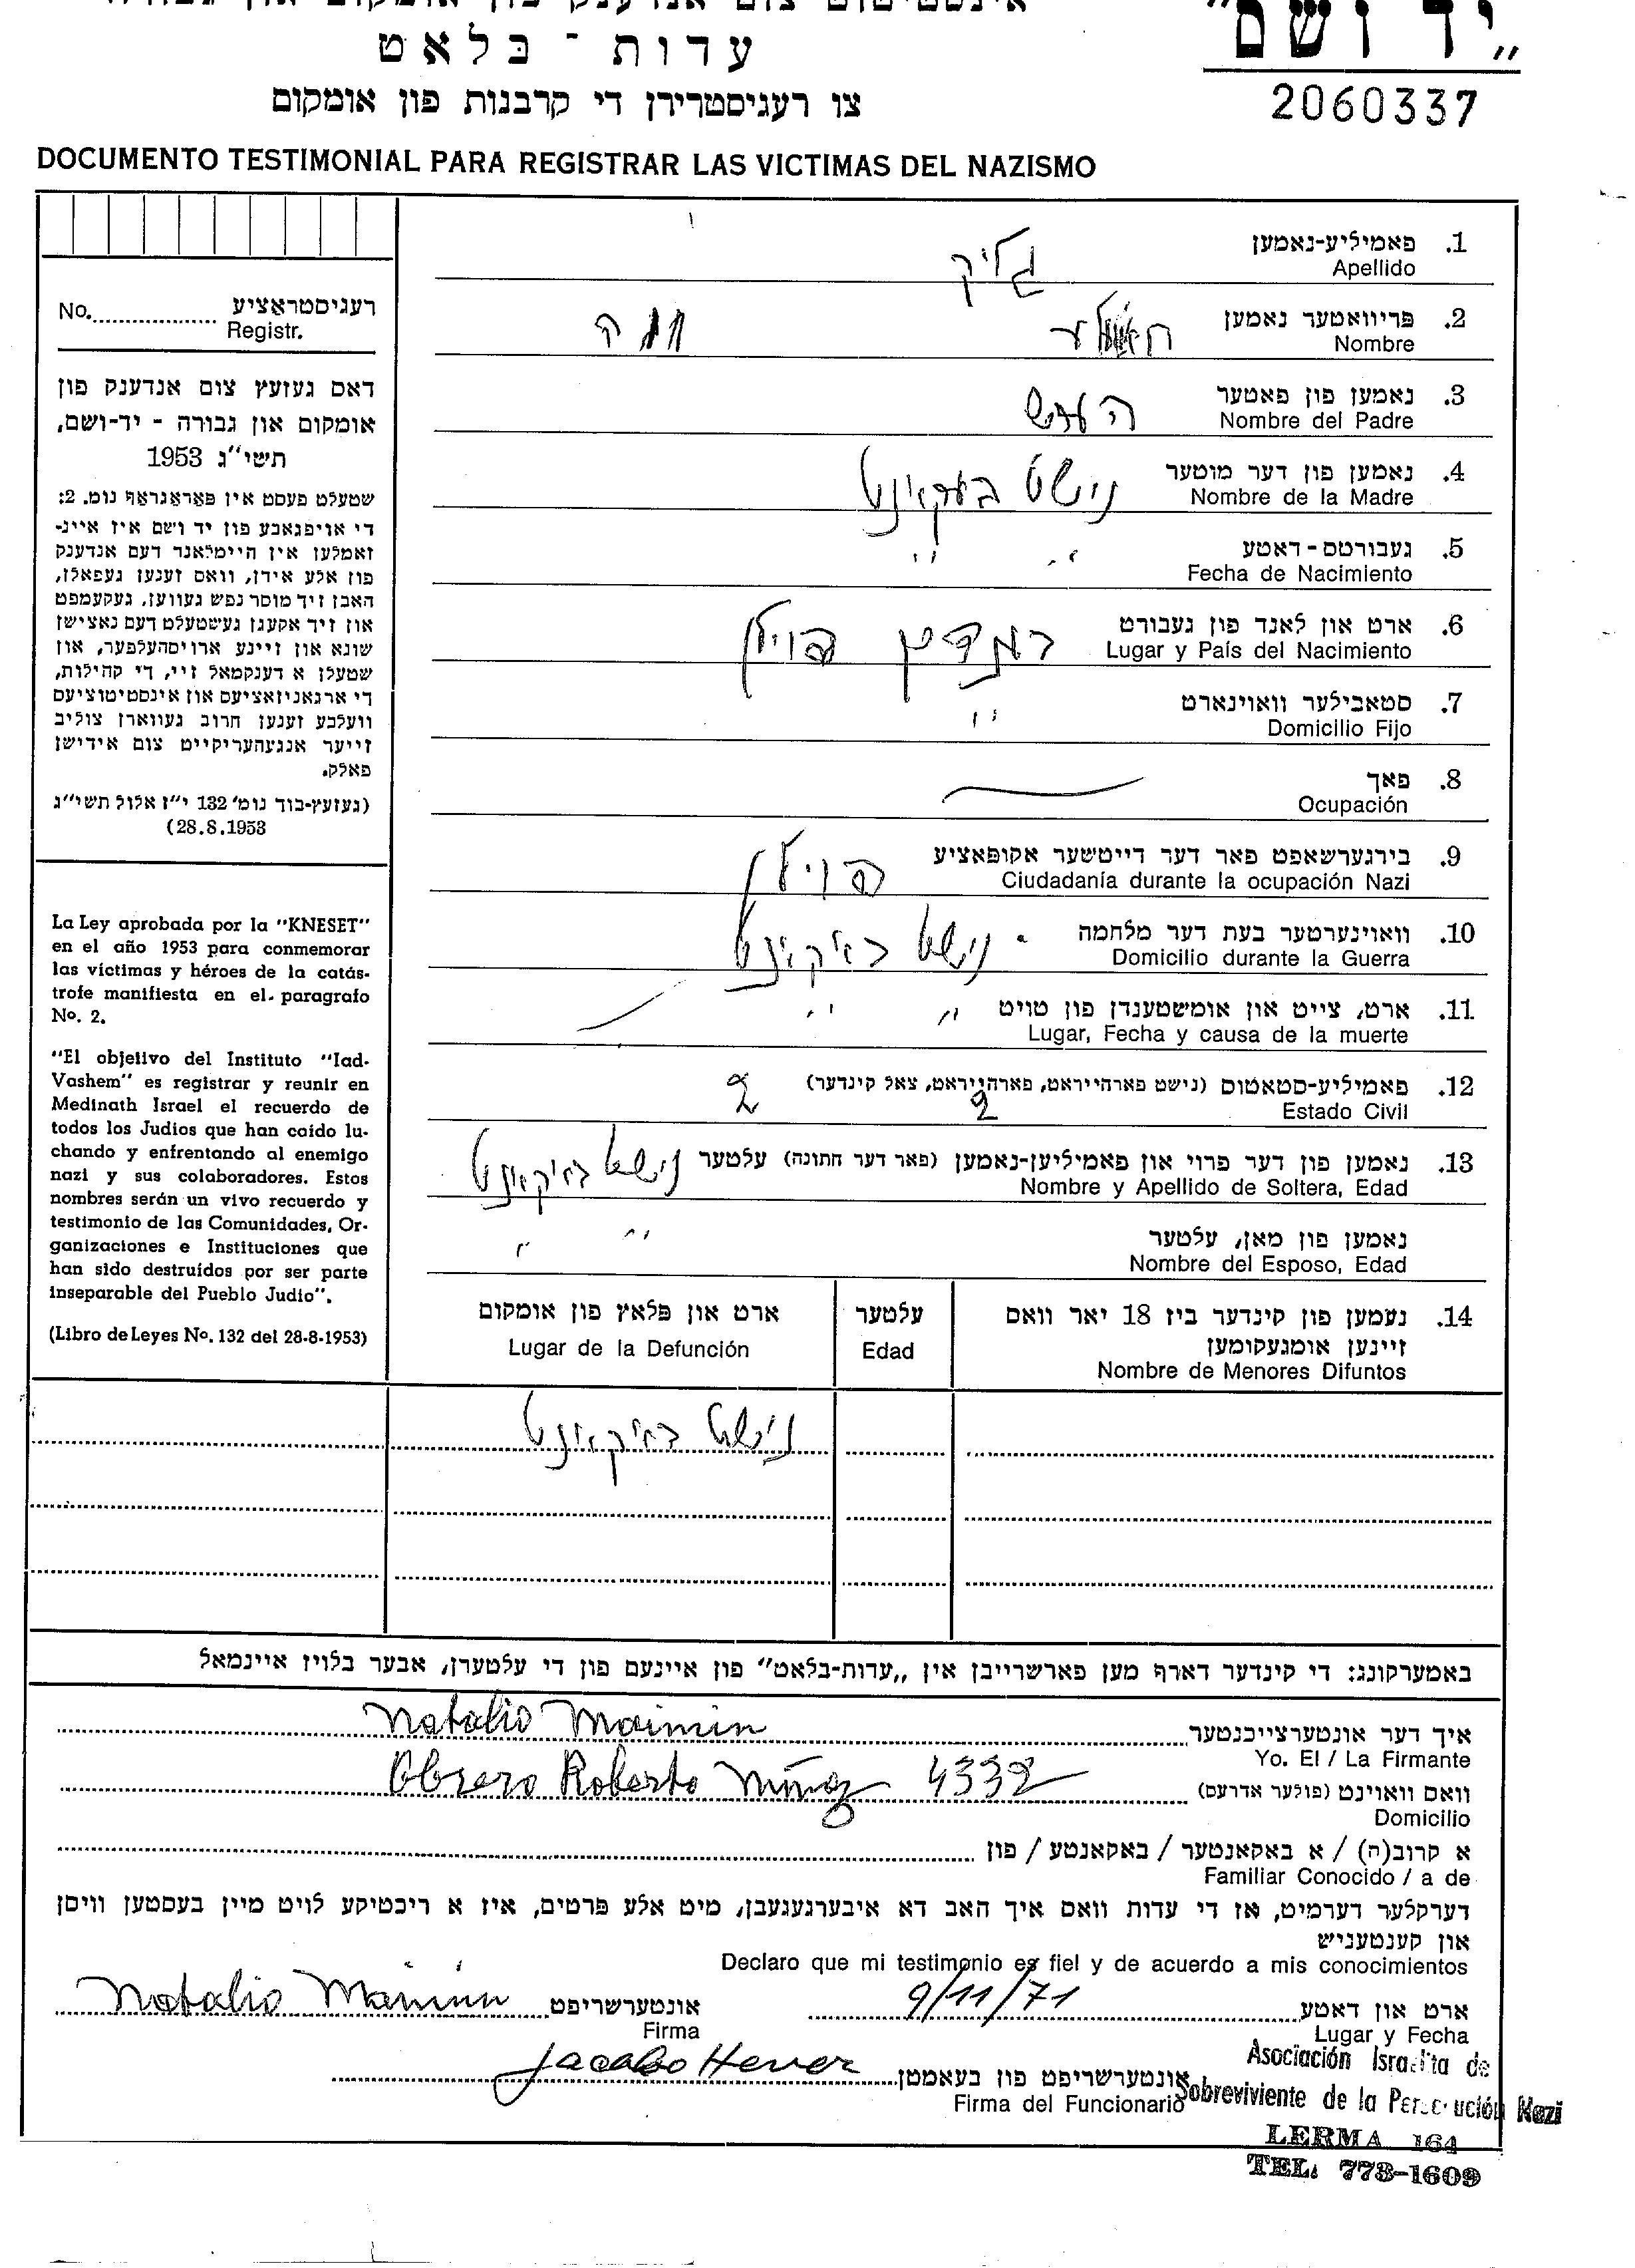 „יד ושם"
עדות - בלאט
צו רעגיסטרירן די קרבנות פון אומקום
2060337
DOCUMENTO TESTIMONIAL PARA REGISTRAR LAS VICTIMAS DEL NAZISMO
רעגיסטראציע
No. Registr.
דאס געזעץ צום אנדענק פון
אומקום און גבורה - יד-ושם,
תשי"ג 1953
שטעלט פעסט אין פאראגראף נומ. 2:
די אויפגאבע פון יד ושם איז איינ-
זאמלען אין היימלאנד דעם אנדענק
פון אלע אידן, וואס זענען געפאלן,
האבן זיך מוסר נפש געווען, געקעמפט
און זיך אקעגן געשטעלט דעם נאצישן
שונא און זיינע ארויסהעלפער, און
שטעלן א דענקמאל זיי, די קהילות,
די ארגאניזאציעס און אינסטיטוציעס
וועלכע זענען חרוב געווארן צוליב
זייער אנגעהעריקייט צום אידישן
פאלק.
(געזעץ-בוך נומ' 132 י"ז אלול תשי"ג
28.8.1953)
La Ley aprobada por la "KNESET"
en el año 1953 para conmemorar
las víctimas y héroes de la catás-
trofe manifiesta en el. paragrafo
No. 2.
"El objetivo del Instituto "Iad-
Vashem" es registrar y reunir en
Medinath Israel el recuerdo de
todos los Judios que han caído lu-
chando y enfrentando al enemigo
nazi y sus colaboradores. Estos
nombres serán un vivo recuerdo y
testimonio de las Comunidades, Or-
ganizaciones e Instituciones que
han sido destruídos por ser parte
inseparable del Pueblo Judio".
(Libro de Leyes No. 132 del 28-8-1953)
1. פאמיליע-נאמען גליק
Apellido
2. פריוואטער נאמען
Nombre
3. נאמען פון פאטער הערש
Nombre del Padre
4. נאמען פון דער מוטער נישט באקאנט
Nombre de la Madre
5. געבורטס-דאטע " "
Fecha de Nacimiento
6. ארט און לאנד פון געבורט פוילן
Lugar y País del Nacimiento
7. סטאבילער וואוינארט "
Domicilio Fijo
8. פאך
Ocupación
9. בירגערשאפט פאר דער דייטשער אקופאציע פוילן
Ciudadanía durante la ocupación Nazi
10. וואוינערטער בעת דער מלחמה נישט באקאנט
Domicilio durante la Guerra
11. ארט, צייט און אומשטענדן פון טויט " " "
Lugar, Fecha y causa de la muerte
12. פאמיליע-סטאטוס (נישט פארהייראט, פארהייראט, צאל קינדער) 2 2
Estado Civil
13. נאמען פון דער פרוי און פאמיליען-נאמען (פאר דער חתונה) עלטער נישט באקאנט
Nombre y Apellido de Soltera, Edad
נאמען פון מאן, עלטער " "
Nombre del Esposo, Edad
14. נעמען פון קינדער ביז 18 יאר וואס
זיינען אומגעקומען
Nombre de Menores Difuntos
עלטער
Edad
ארט און פלאץ פון אומקום
Lugar de la Defunción
נישט באקאנט
באמערקונג: די קינדער דארף מען פארשרייבן אין „עדות-בלאט" פון איינעם פון די עלטערן, אבער בלויז איינמאל
איך דער אונטערצייכנטער Natalio Maimin
Yo. El / La Firmante
וואס וואוינט (פולער אדרעס) Obrero Roberto Núñez 4332
Domicilio
א קרוב(ה) / א באקאנטער / באקאנטע / פון
Familiar Conocido / a de
דערקלער דערמיט, אז די עדות וואס איך האב דא איבערגעגעבן, מיט אלע פרטים, איז א ריכטיקע לויט מיין בעסטען וויסן
און קענטעניש
Declaro que mi testimonio es fiel y de acuerdo a mis conocimientos
ארט און דאטע 9/11/71 אונטערשריפט Natalio Maimin
Lugar y Fecha Firma
אונטערשריפט פון בעאמטן Jacabo Hener
Firma del Funcionario
Asociación Israelita de
Sobreviviente de la Persecución Nazi
LERMA 164
TEL. 773-1609